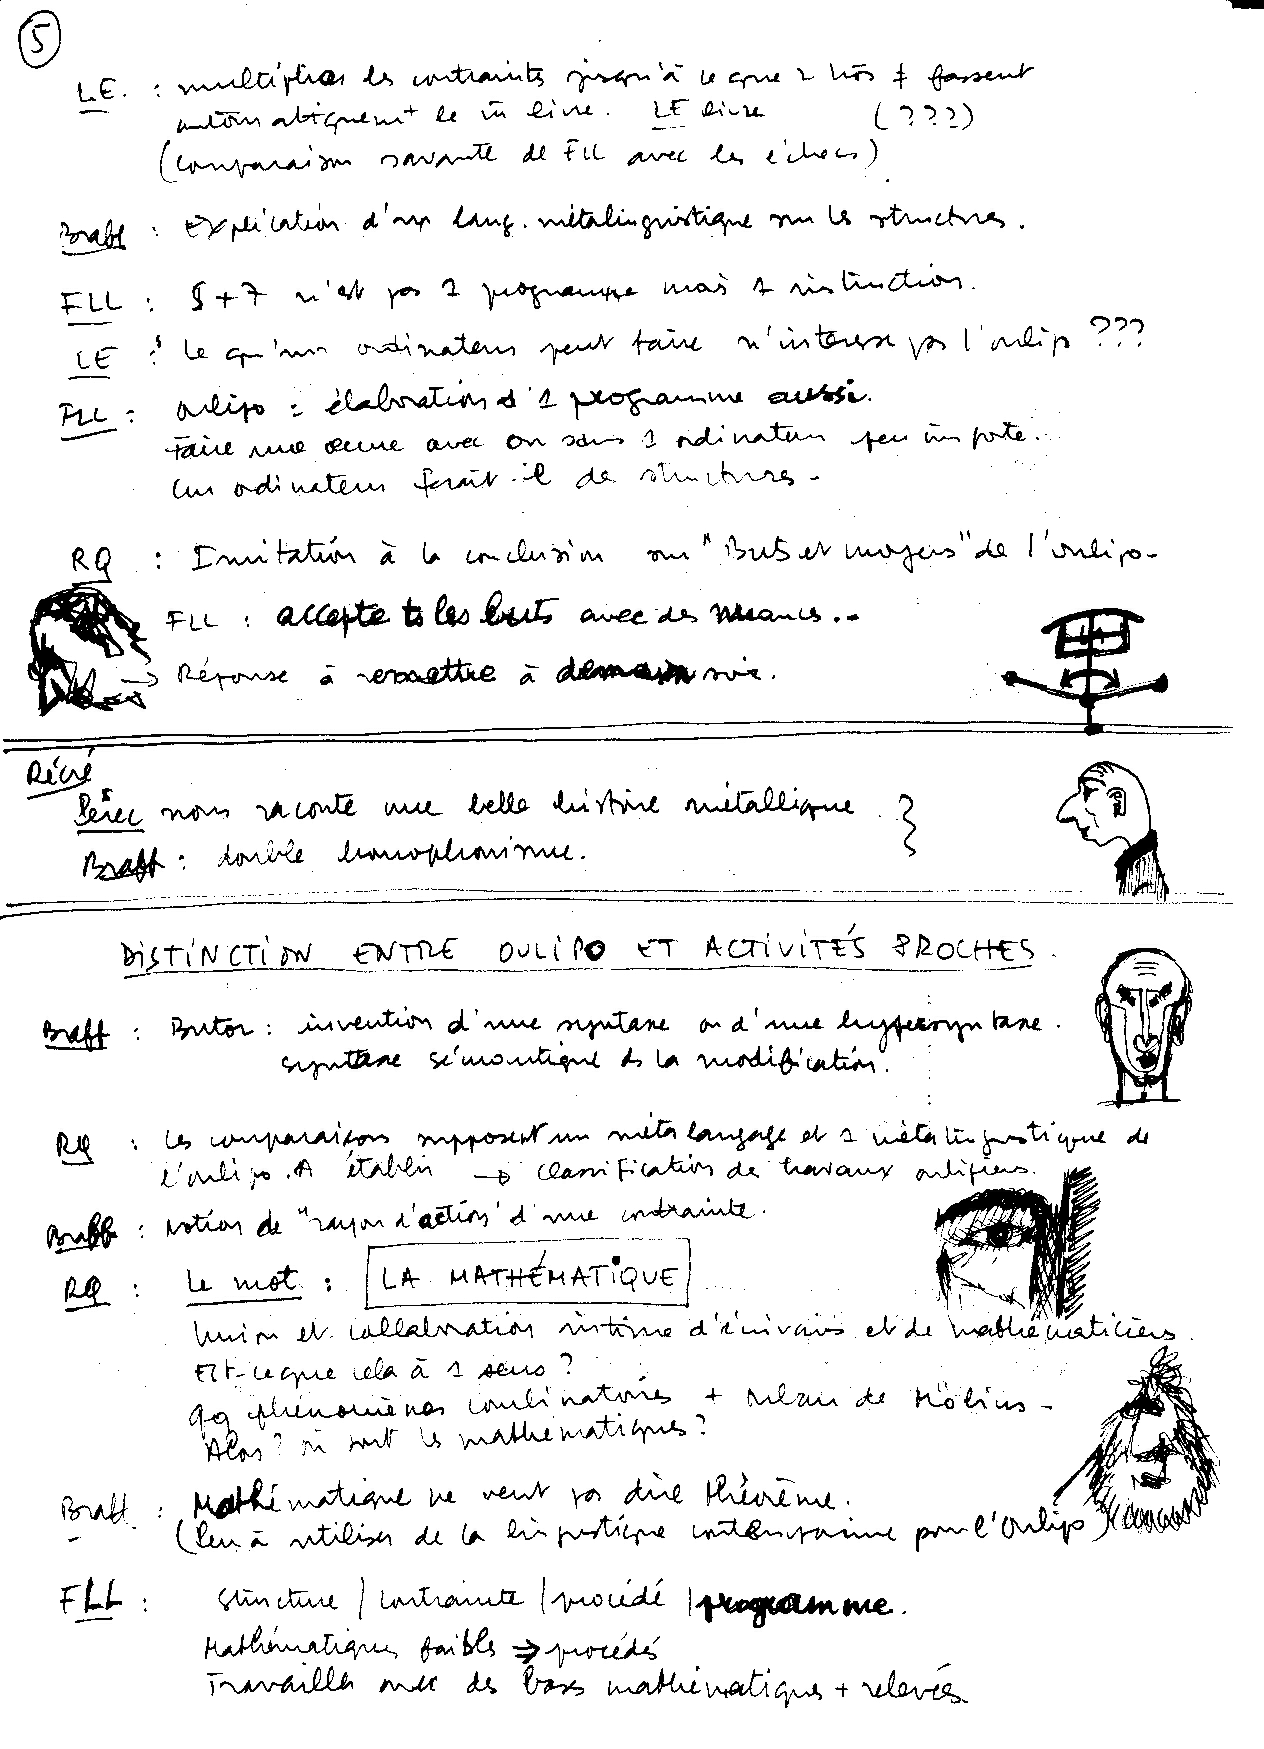 5
LE : multiplier les contraintes jusqu'à ce que 2 hôs ≠ fassent
automatiquemt le m̄ livre. LE livre (???)
(comparaison savante de FLL avec les échecs)
Braff : Explication d'un lang. métalinguistique sur les structures.
FLL : S+7 n'est pas 1 programme mais 1 instruction.
LE : Ce qu'un ordinateur peut faire n'intéresse pas l'oulipo ???
FLL : Oulipo : élaboration d'1 programme aussi.
Faire une œuvre avec ou sans 1 ordinateur peu importe.
Un ordinateur ferait-il de structures.
RQ : Invitation à la conclusion sur "Buts et moyens" de l'oulipo-
FLL : accepte ts les buts avec des nuances...
→ Réponse à remettre à demain soir.
Récré
Pérec nous raconte une belle histoire métallique
Braff : double homophonisme.
DISTINCTION ENTRE OULIPO ET ACTIVITÉS PROCHES.
Braff : Butor : invention d'une syntaxe ou d'une hypersyntaxe.
syntaxe sémantique ds la modification.
RQ : Les comparaisons supposent un méta langage et 1 métalinguistique de
l'oulipo. A établir → classification de travaux oulipiens.
Braff : Notion de "rayon d'action" d'une contrainte.
RQ : Le mot : LA MATHÉMATIQUE
Union et collaboration intime d'écrivains et de mathématiciens.
Est-ce que cela à 1 sens ?
qq phénomènes combinatoires + ruban de Möbius -
Alors ? où sont les mathématiques ?
Braff : Mathématique ne veut pas dire théorème.
(lieu à utiliser de la linguistique contemporaine pour l'Oulipo)
FLL : Structure / contrainte / procédé / programme.
Mathématiques faibles → procédés
Travailler avec des bases mathématiques + relevées